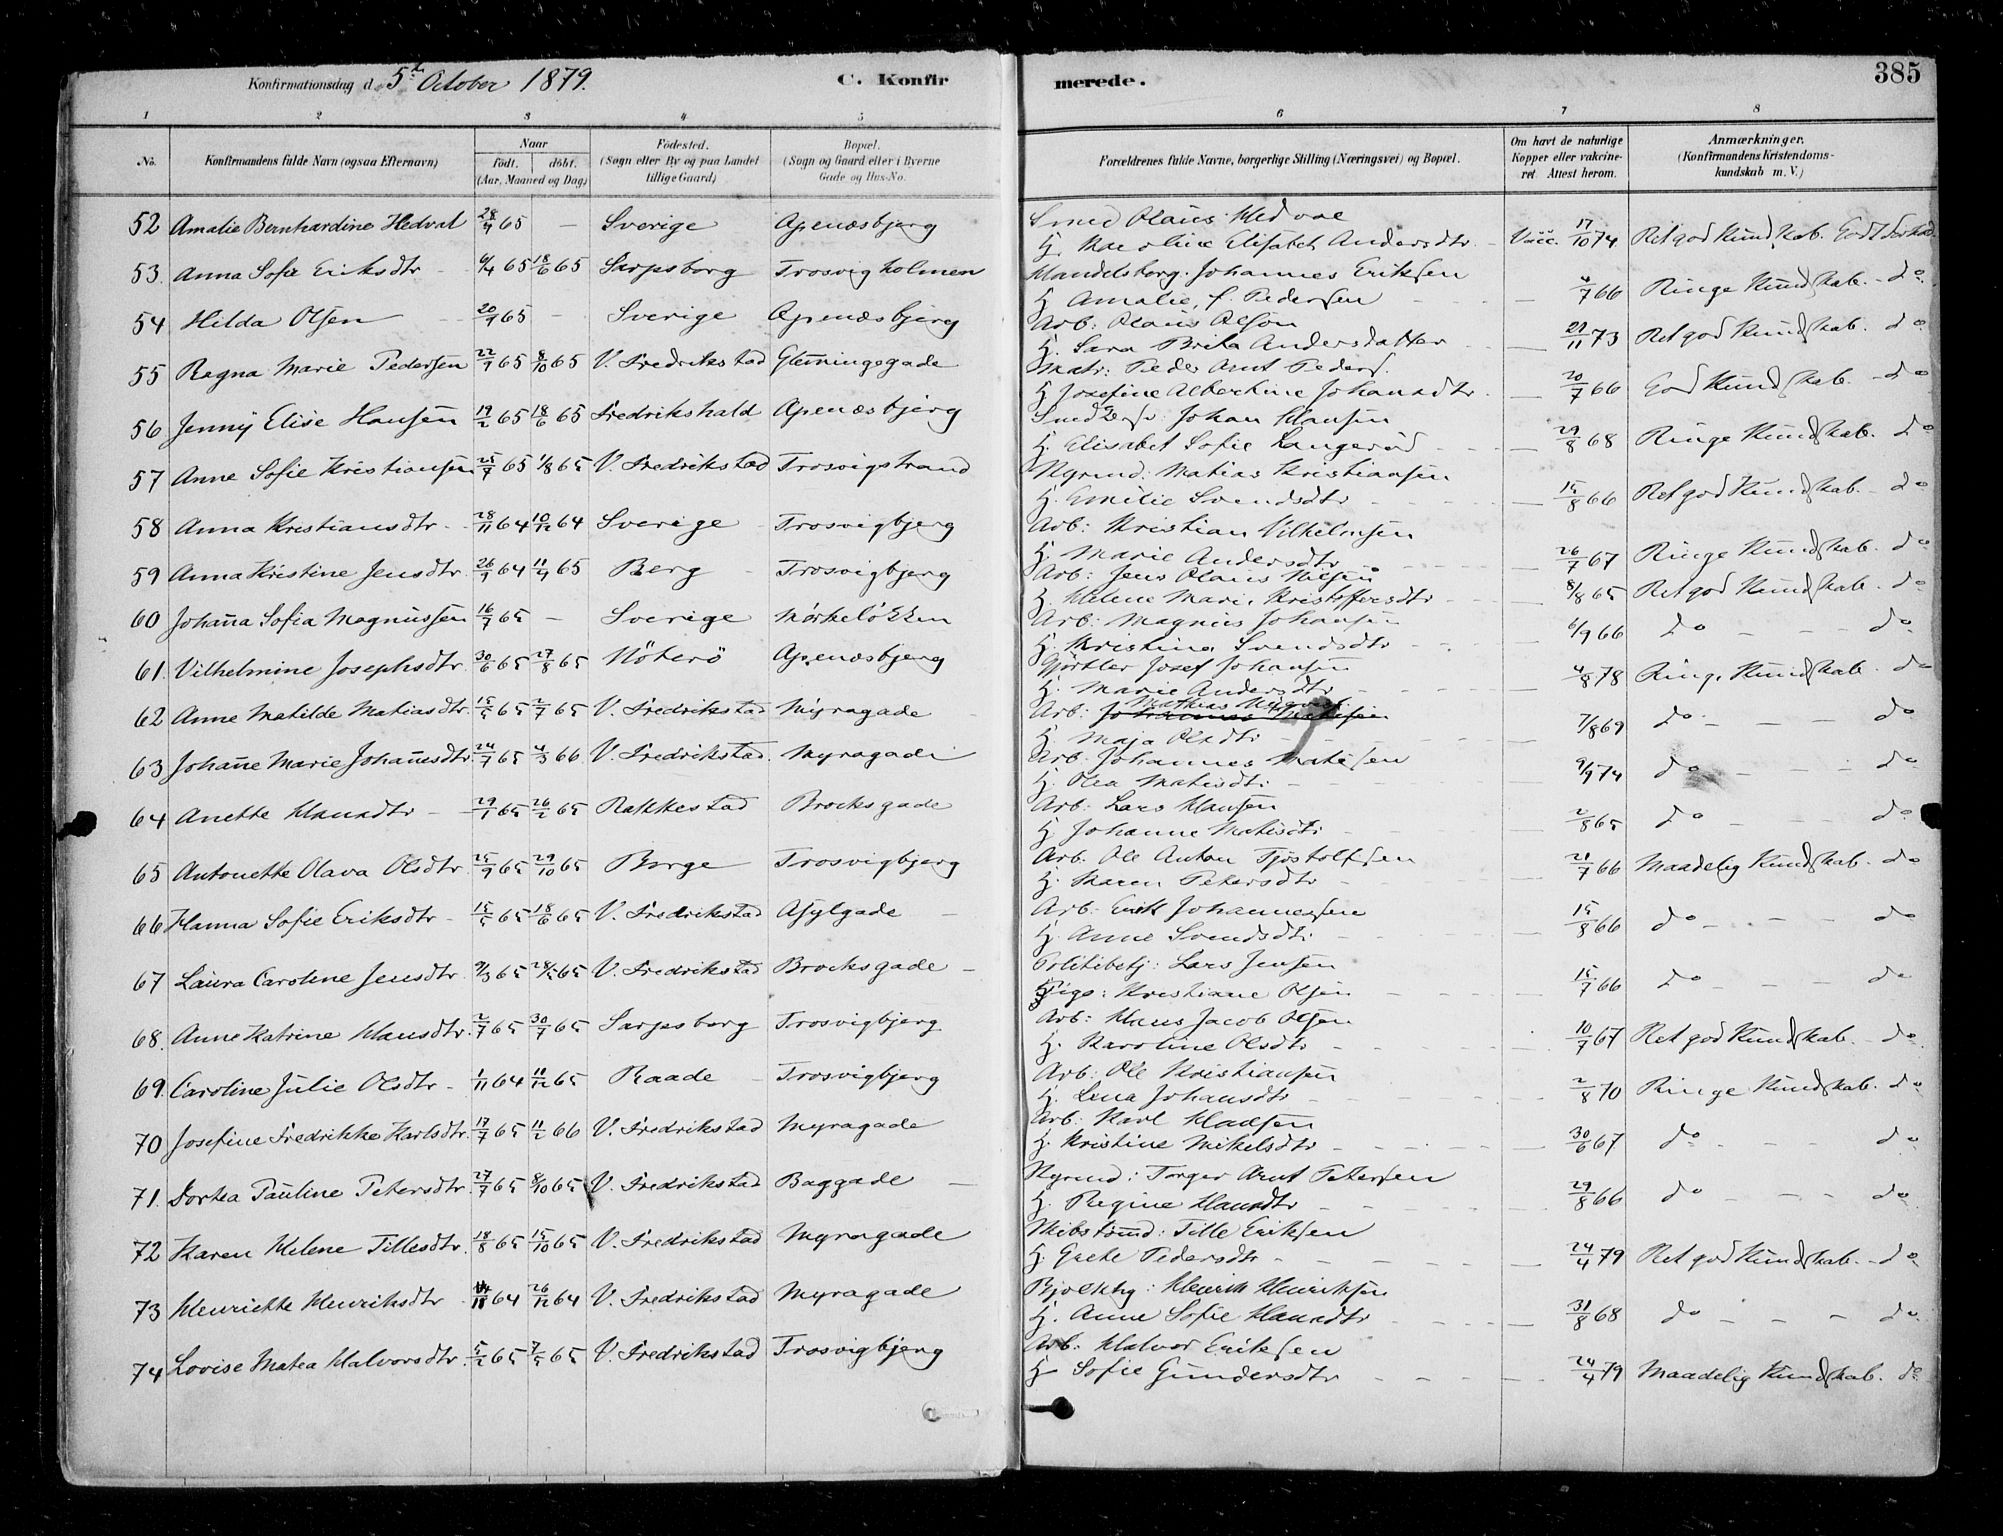 Konfirmationsdag d. 5te October 1879.
C. Konfirmerede.
385
1 2 3 4 5 6 7 8
No. Konfirmandens fulde Navn (ogsaa Efternavn) Naar født. døbt. (Aar, Maaned og Dag) Fødested. (Sogn eller By og paa Landet tillige Gaard) Bopæl. (Sogn og Gaard eller i Byerne Gade og Hus-No. Forældrenes fulde Navne, borgerlige Stilling (Næringsvei) og Bopæl. Om havt de naturlige Kopper eller vakcineret. Attest herom. Anmærkninger. (Konfirmandens Kristendomskundskab m. V.)
52 Amalie Bernhardine Hedval 28/4 65 — Sverige Apenæsbjerg Smed Olaüs Hedval H. Karoline Elisabet Andersdtr. Vacc. 17/10 74 Ret god Kundskab. Godt Forhold
53. Anna Sofie Eriksdtr 6/4 65 18/6 65 Sarpsborg Trosvigholmen Handelsborg. Johannes Eriksen H. Amalie, f. Pedersen — 4/7 66 Ringe Kundskab. do
54 Hilda Olsen 20/1 65 — Sverige Apenæsbjerg Arb: Olaüs Olson H. Sara Brita Andersdatter — 29/11 73 Ret god Kundskab. do
55 Ragna Marie Pedersen 22/7 65 8/10 65 V. Fredrikstad Glemingegade Matr: Peder Arnt Peders. H. Josefine Albertine Johansdtr. — 20/7 66 God Kundskab. do
56 Jenny Elise Hansen 19/2 65 18/6 65 Fredrikshald Apenæsbjerg Johan Hansen H. Elisabet Sofie Langerød — 29/8 68 Ringe Kundskab. do
57 Anne Sofie Kristiansen 25/7 65 1/8 65 V. Fredrikstad Trosvigstrand Styrmd: Matias Kristiansen H. Emilie Svendsdtr — 15/8 66 Ret god Kundskab. do
58 Anna Kristiansdtr 28/11 64 10/12 64 Sverige Trosvigbjerg Arb: Kristian Vilhelmsen H. Marie Andersdtr — 26/7 67 Ringe Kundskab. do
59 Anna Kristine Jensdtr. 26/9 64 11/4 65 Berg Trosvigbjerg Arb: Jens Olaus Nilsen H. Helene Marie Kristoffersdtr — 8/8 65 Ret god Kundskab. do
60 Johanna Sofia Magnüssen 16/7 65 — Sverige Mørkeløkken Arb: Magnüs Johansen H. Kristina Svendsdtr 6/9 66 do — do
61. Vilhelmine Josephsdtr. 30/6 65 27/8 65 Nøterø Apenæsbjerg Gjørtler Josef Johansen H. Marie Andersdtr — 4/8 78 Ringe Kundskab do
62 Anne Matilde Matiasdtr. 15/5 65 2/7 65 V. Fredrikstad Myragade Arb: Johannes Matisen Mathias H. Maja Olsdtr — 7/8 69 do — do
63 Johanne Marie Johannesdtr. 24/7 65 4/3 66 V. Fredrikstad. Myragade Arb. Johannes Matisen H. Olea Matisdtr. — 9/9 74 do — do
64 Anette Hansdtr 29/1 65 26/2 65 Rakkestad Brocksgade Arb: Lars Hansen H. Johanne Matisdtr — 2/8 65 do — do
65 Antonette Olava Olsdtr. 25/9 65 29/10 65 Borge Trosvigbjerg Arb. Ole Anton Tjøstolfsen H. Karen Petersdtr — 21/7 66 Maadelig Kundskab. do
66 Hanna Sofie Eriksdtr 15/5 65 18/6 65 V. Fredrikstad Asylgade Arb. Erik Johannesen H. Anne Svendsdtr. — 15/8 66 do — do
67 Laüra Caroline Jensdtr. 9/3 65 28/5 65 V. Fredrikstad Brocksgade — Politibetj: Lars Jensen Pige: Kristiane Olsen — 15/7 66 do — do
68. Anne Katrine Hansdtr. 2/7 65 30/7 65 Sarpsborg Trosvigbjerg Arb: Hans Jacob Olsen H. Karoline Olsdtr — 10/7 67 Ret god Kundskab. do
69. Caroline Julie Olsdtr 1/11 64 11/12 65 Raade Trosvigbjerg Arb: Ole Kristiansen H. Lina Johansdtr — 2/8 70 Ringe Kundskab. do
70 Josefine Fredrikke Karlsdtr. 17/7 65 11/2 66 V. Fredrikstad Myragade Arb: Karl Hansen H. Kristine Mikelsdtr — 30/6 67 do — do
71. Dortea Pauline Petersdtr. 27/7 65 8/10 65 V. Fredrikstad Baggade — Styrmd: Torger Arnt Petersen H. Regine Hansdtr — 29/8 66 do — do
72 Karen Helene Tillesdtr. 18/8 65 15/10 65 V. Fredrikstad Myragade Skibstømd: Tille Eriksen H. Grete Pedersdtr — 24/4 79 Ret god Kundskab. do
73 Henriette Henriksdtr 64 26/12 64 V. Fredrikstad Myragade Henrik Henriksen H. Anne Sofie Hansdtr — 31/8 68 do — do
74 Lovise Matea Halvorsdtr. 5/2 65 7/5 65 V. Fredrikstad Trosvigbjerg Arb. Halvor Eriksen H. Sofie Gundersdtr — 24/4 79 Maadelig Kundskab. do